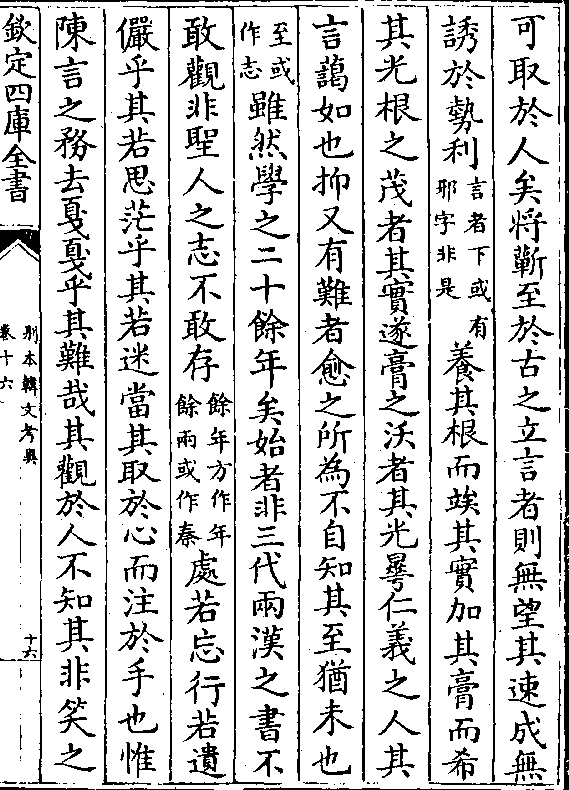 可取於人矣將蘄至於古之立言者則無望其速成無
誘於勢利言者下或有邪字非是養其根而竢其實加其膏而希
其光根之茂者其實遂膏之沃者其光曅仁義之人其
言藹如也抑又有難者愈之所為不自知其至猶未也
至或作志雖然學之二十餘年矣始者非三代兩漢之書不
敢觀非聖人之志不敢存餘年方作年餘兩或作秦處若忘行若遺
儼乎其若思茫乎其若迷當其取於心而注於手也惟
陳言之務去戛戛乎其難哉其觀於人不知其非笑之
欽定四庫全書
原本韓文考異
卷十六
十六